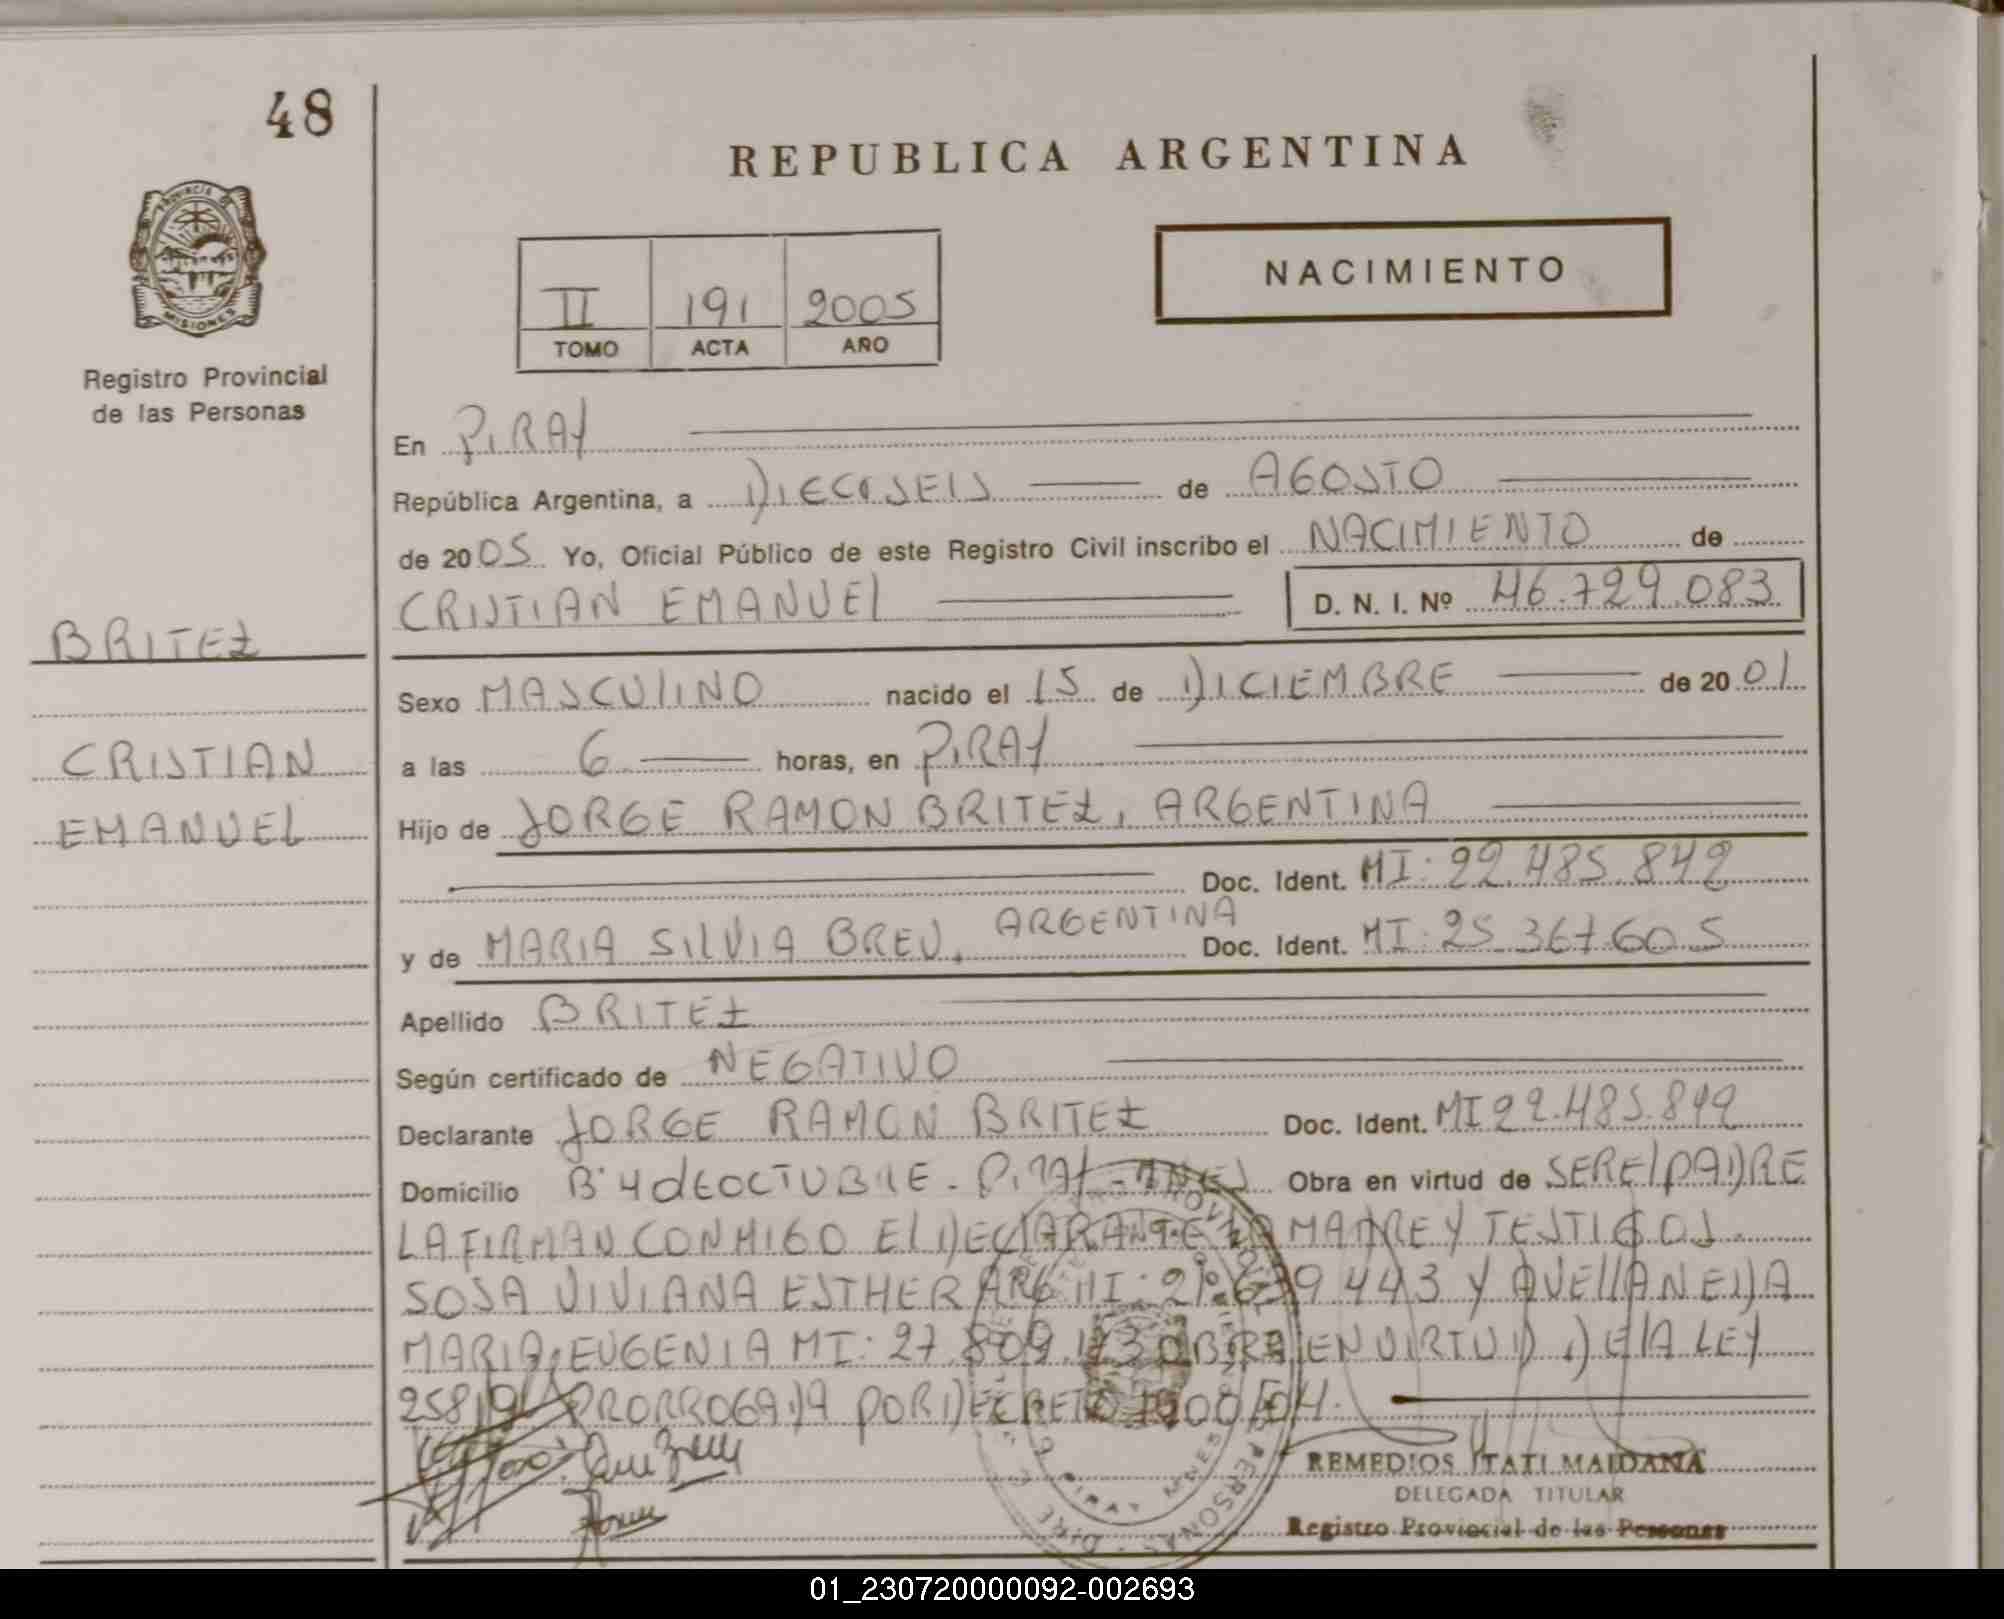 48
REPUBLICA ARGENTINA
PROVINCIA DE
MISIONES
Registro Provincial
de las Personas
NACIMIENTO
II 191 2005
TOMO ACTA AÑO
En PIRAY
República Argentina, a DIECISEIS de AGOSTO
de 2005 Yo, Oficial Público de este Registro Civil inscribo el NACIMIENTO de
CRISTIAN EMANUEL D. N. I. Nº 46.729.083
BRITEZ
CRISTIAN
EMANUEL
Sexo MASCULINO nacido el 15 de DICIEMBRE de 2001
a las 6 horas, en PIRAY
Hijo de JORGE RAMON BRITEZ, ARGENTINA
Doc. Ident. MI: 22.485.842
y de MARIA SILVIA BREU, ARGENTINA Doc. Ident. MI: 25.367.605
Apellido BRITEZ
Según certificado de NEGATIVO
Declarante JORGE RAMON BRITEZ Doc. Ident. MI 22.485.842
Domicilio Bº 4 de OCTUBRE - PIRAY - MNES Obra en virtud de SER EL PADRE
LA FIRMAN CONMIGO EL DECLARANTE LA MADRE Y TESTIGOS
SOSA VIVIANA ESTHER ARG MI: 443 Y AVELLANEDA
MARIA EUGENIA MI: 27.809. OBRA EN VIRTUD DE LA LEY
25819 PRORROGADA POR DECRETO /04.
REMEDIOS ITATI MAIDANA
DELEGADA TITULAR
Registro Provincial de las Personas
01_230720000092-002693